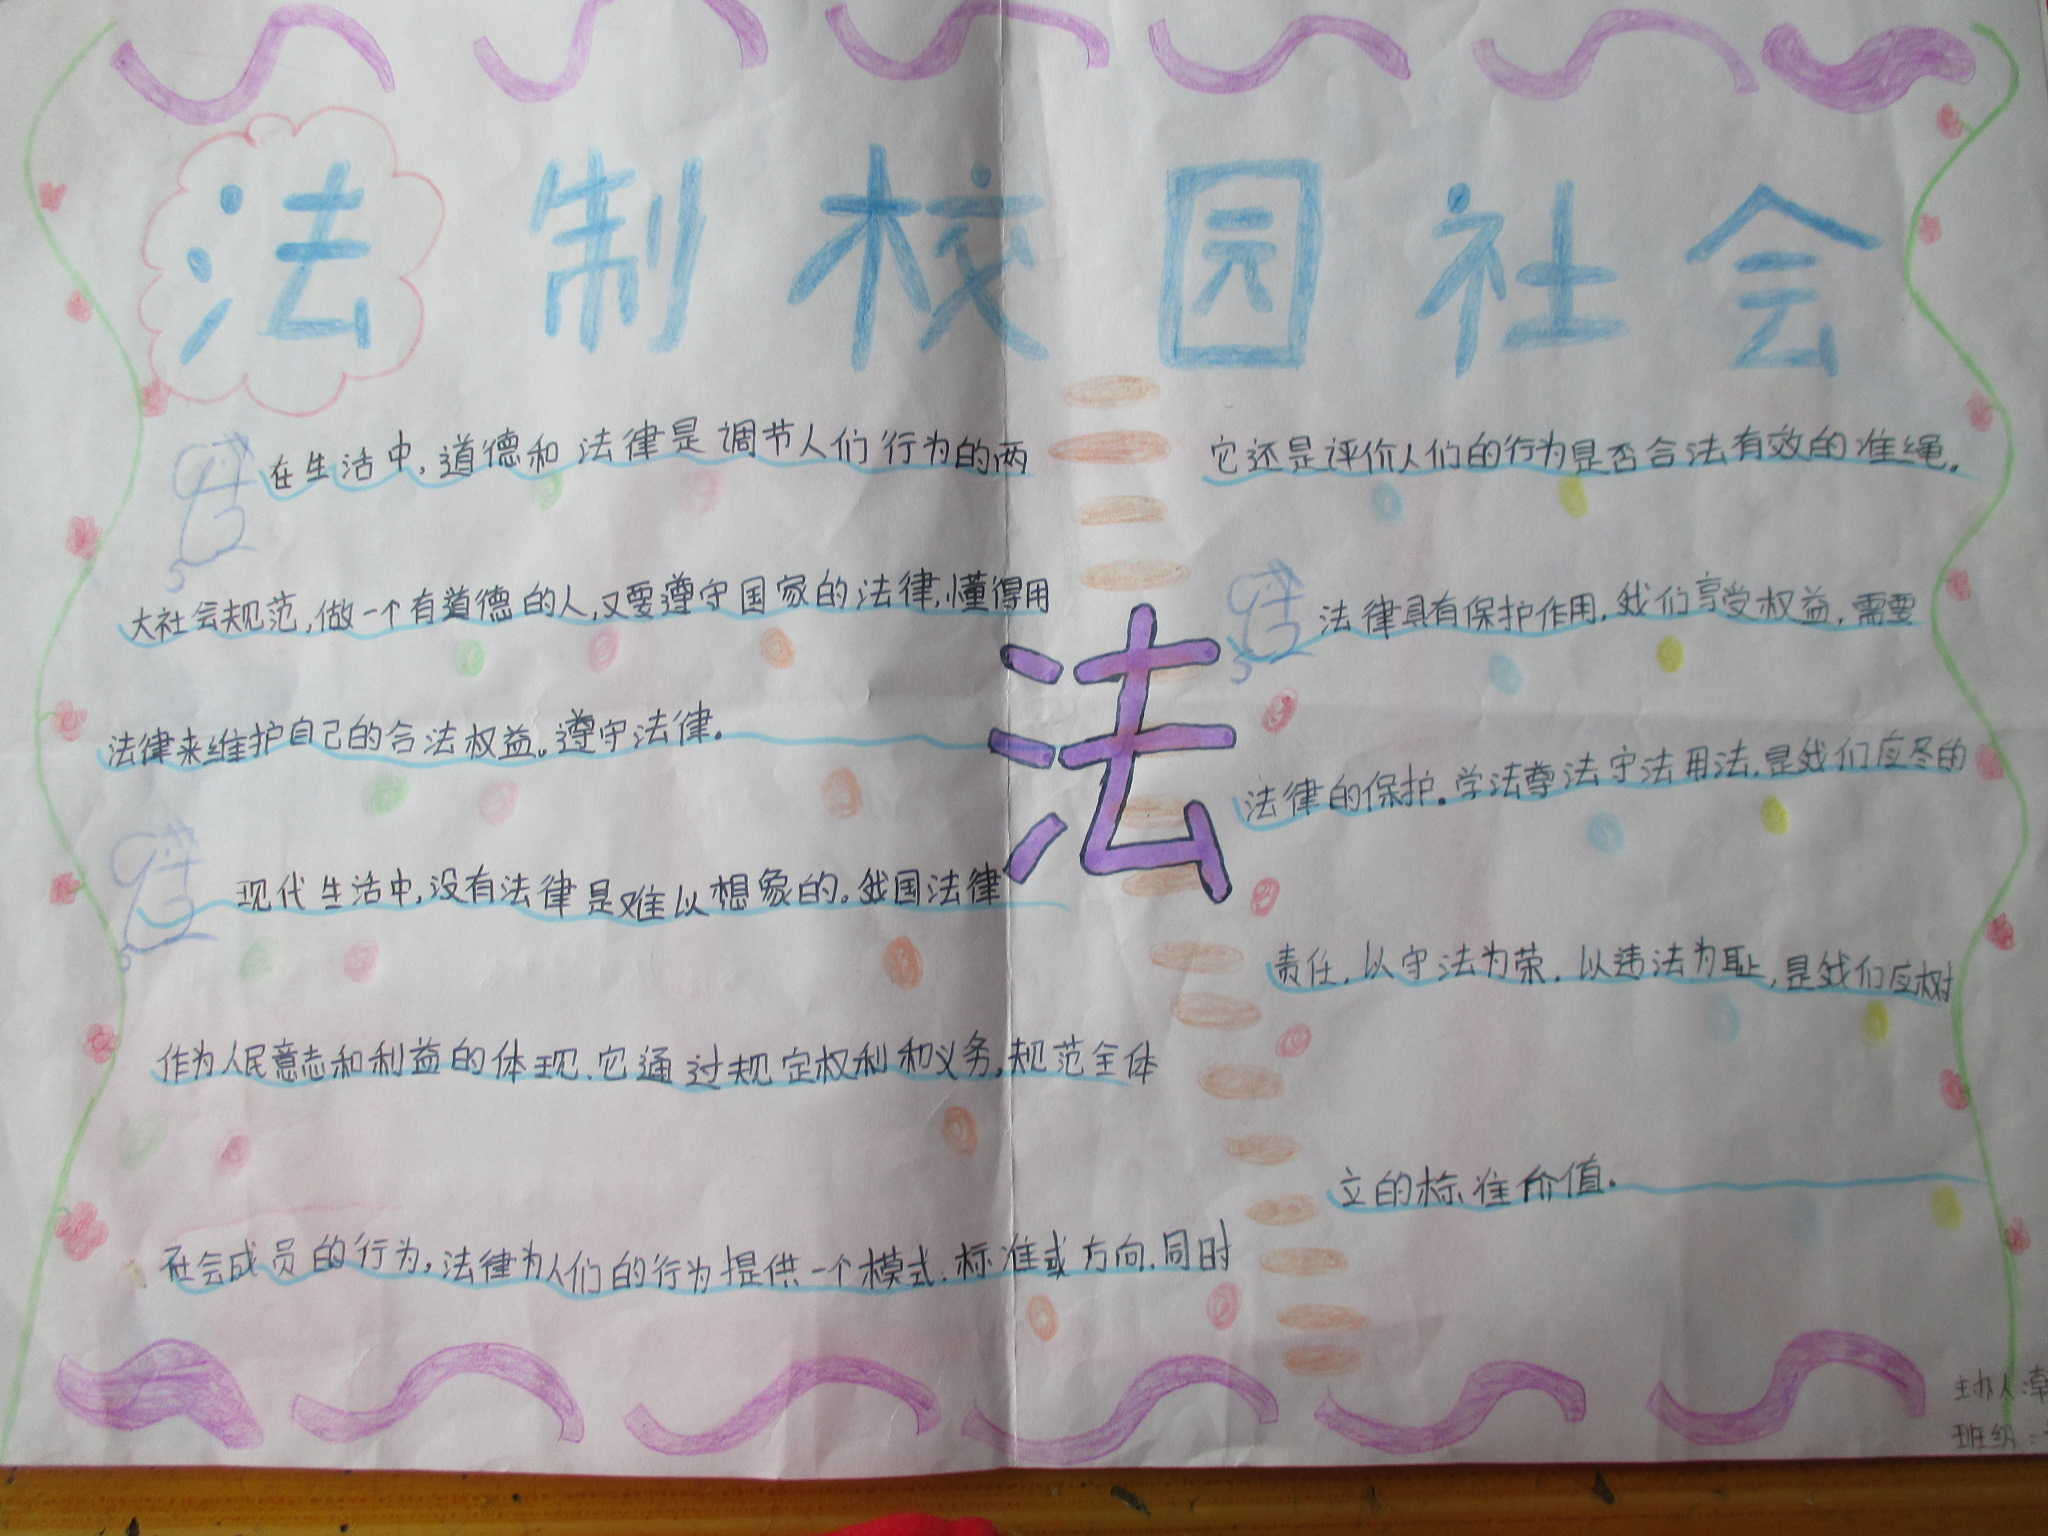 法制校园社会
在生活中,道德和法律是调节人们行为的两
大社会规范,做一个有道德的人,又要遵守国家的法律,懂得用
法律来维护自己的合法权益。遵守法律.
现代生活中,没有法律是难以想象的。我国法律
作为人民意志和利益的体现、它通过规定权利和义务,规范全体
社会成员的行为,法律为人们的行为提供一个模式、标准或方向.同时
法
它还是评价人们的行为是否合法有效的准绳.
法律具有保护作用,我们享受权益,需要
法律的保护.学法尊法守法用法,是我们应尽的
责任,以守法为荣,以违法为耻,是我们应树
立的标准价值.
主办人:
班级: